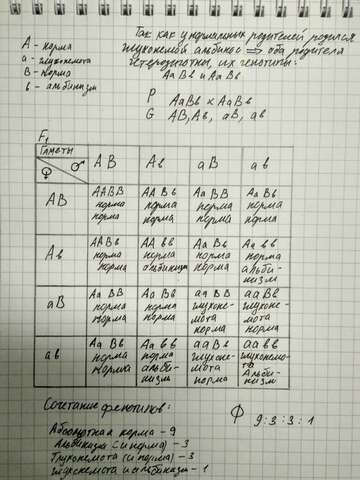 Так как у нормальных родителей родился
глухонемой альбинос ⇒ оба родителя
гетерозиготны, их генотипы:
АаВв и АаВв
А - норма
а - глухонемота
В - норма
в - альбинизм
Р АаВв × АаВв
G АВ, Ав, аВ, ав
F₁
Гаметы ♀ ♂ АВ Ав аВ ав
АВ ААВВ норма норма ААВв норма норма АаВВ норма норма АаВв норма норма
Ав ААВв норма норма ААвв норма альбинизм АаВв норма норма Аавв норма альбинизм
аВ АаВВ норма норма АаВв норма норма ааВВ глухонемота норма ааВв глухонемота норма
ав АаВв норма норма Аавв норма альбинизм ааВв глухонемота норма аавв глухонемота альбинизм
Сочетание фенотипов:
Абсолютная норма - 9
Альбинизм (и норма) - 3
Глухонемота (и норма) - 3
Глухонемота и альбинизм - 1
Ф 9:3:3:1